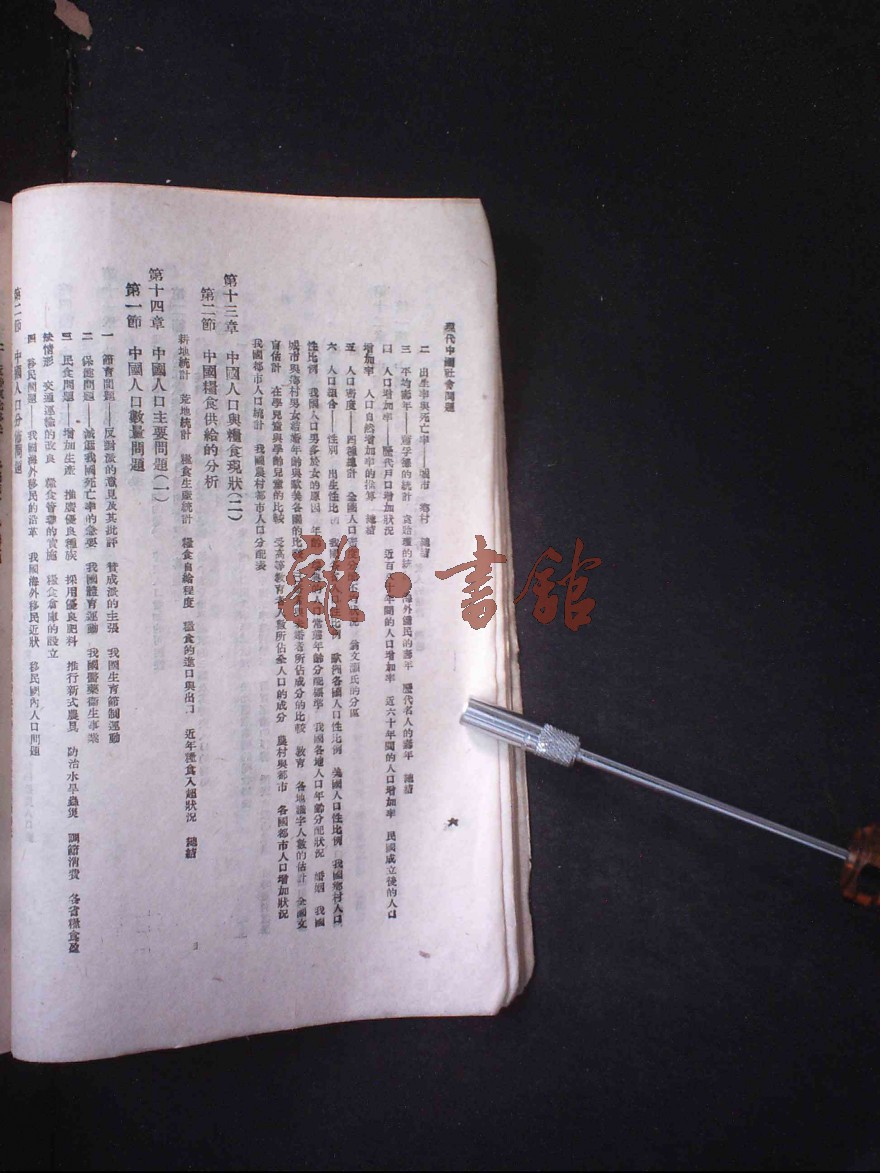 現代中國社會問題
六
二 出生率與死亡率——城市 鄉村 總結
三 平均壽年——的統計 海外僑民的壽年 歷代名人的壽年 總結
四 人口增加率——歷代戶口增加狀況 近百年間的人口增加率 近六十年間的人口增加率 民國成立後的人口
增加率 人口自然增加率的推算 總結
五 人口密度——四種統計 全國人口密度 翁文灝氏的分區
六 人口組合——性別 出生性比 我國人口性比例 歐洲各國人口性比例 美國人口性比例 我國鄉村人口
性比例 我國人口男多於女的原因 年齡 人口常態年齡分配標準 我國各地人口年齡分配狀況 婚姻 我國
城市與鄉村男女結婚年齡與歐美各國的比較 婚者所佔成分的比較 教育 各地識字人數的估計 全國文
盲估計 在學兒童與學齡兒童的比較 受高等教育者人數所佔全人口的成分 農村與都市 各國都市人口增加狀況
我國都市人口統計 我國農村都市人口分配表
第十三章 中國人口與糧食現狀(二)
第二節 中國糧食供給的分析
耕地統計 荒地統計 糧食生產統計 糧食自給程度 糧食的進口與出口 近年糧食入超狀況 總結
第十四章 中國人口主要問題(一)
第一節 中國人口數量問題
一 節育問題——反對派的意見及其批評 贊成派的主張 我國生育節制運動
二 保健問題——減低我國死亡率的急要 我國體育運動 我國醫藥衛生事業
三 民食問題——增加生產 推廣優良種族 採用優良肥料 推行新式農具 防治水旱蟲災 調節消費 各省糧食盈
缺情形 交通運輸的改良 糧食管理的實施 糧食倉庫的設立
四 移民問題——我國海外移民的沿革 我國海外移民近狀 移民國內人口問題
第二節 中國人口分佈問題
雜·書館